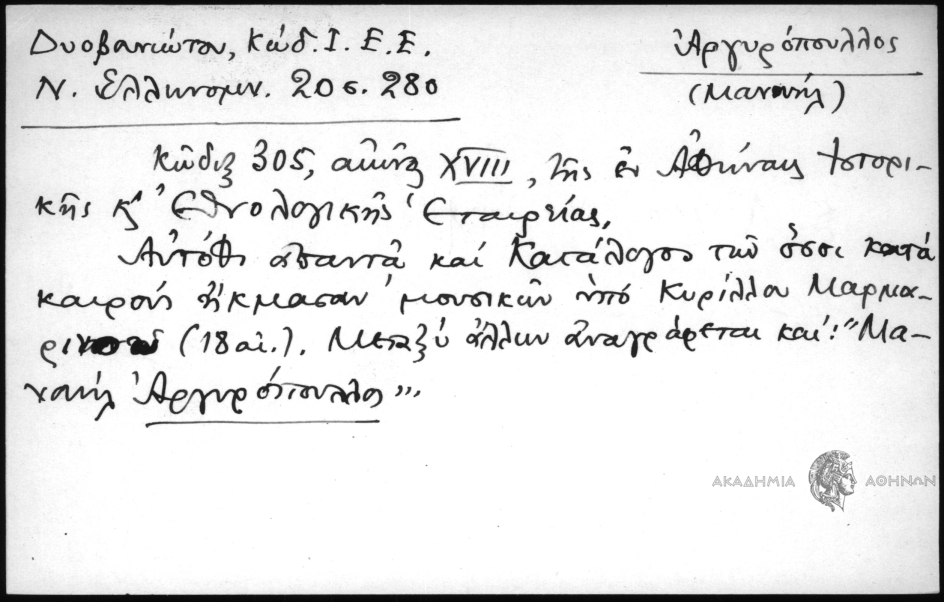 Δυοβουνιώτου, Κώδ. Ι. Ε. Ε.
Ν. Ελληνομν. 20 σ. 280
Ἀργυρόπουλλος
(Μανουὴλ)
Κῶδιξ 305, αἰῶνος XVIII, τῆς ἐν Ἀθήναις Ἱστορι-
κῆς κ' Ἐθνολογικῆς Ἑταιρείας,
Αὐτόθι ἀπαντᾷ καὶ Κατάλογος τῶν ὅσοι κατὰ
καιροὺς ἤκμασαν μουσικῶν ὑπὸ Κυρίλλου Μαρμα-
ρινοῦ (18 αἰ.). Μεταξὺ ἄλλων ἀναγράφεται καί: "Μα-
νουὴλ Ἀργυρόπουλλος"
ΑΚΑΔΗΜΙΑ ΑΘΗΝΩΝ